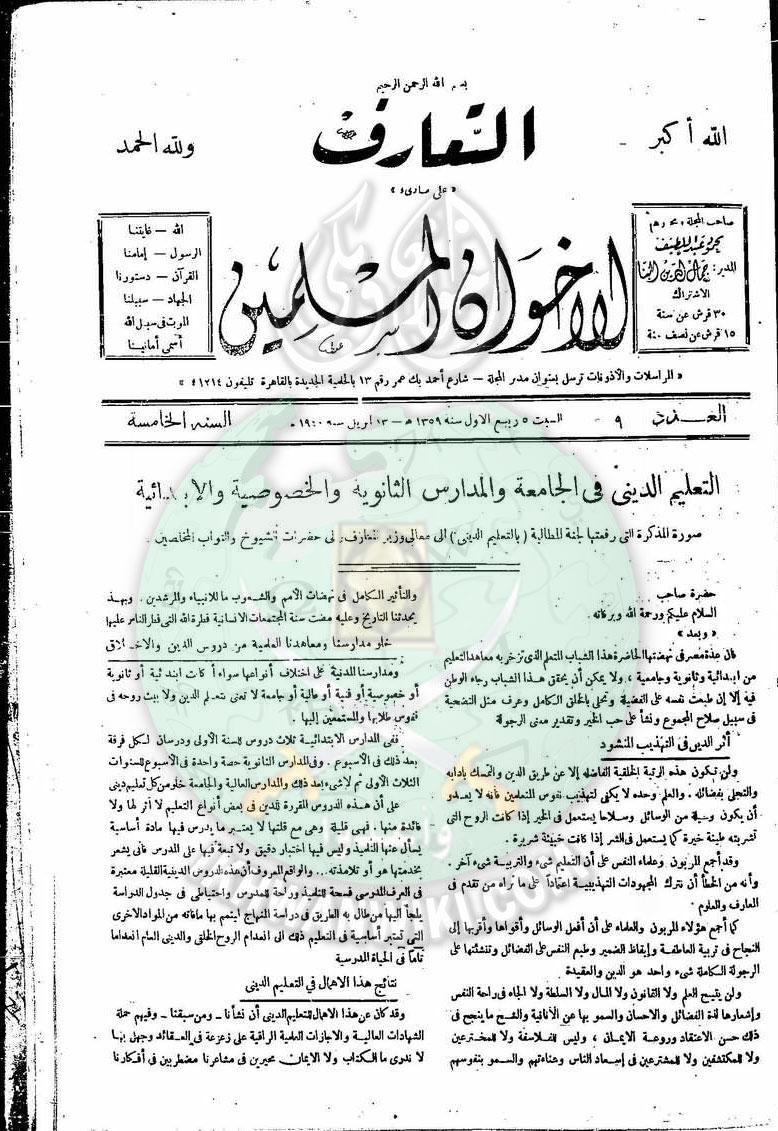 بسم الله الرحمن الرحيم
الله أكبر
التعارف
ولله الحمد
« على مبادىء »
صاحب المجلة ومحررها
محمود عبد اللطيف
المدير : جمال الدين البنا
الاشتراك
٣٠ قرش عن سنة
١٥ قرش عن نصف سنة
الاخوان المسلمين
الله — غايتنا
الرسول — إمامنا
القرآن — دستورنا
الجهاد — سبيلنا
الموت فى سبيل الله
أسمى أمانينا
« المراسلات والأذونات ترسل بعنوان مدير المجلة — شارع أحمد بك عمر رقم ١٣ بالحلمية الجديدة بالقاهرة تليفون ٤١٢١٤ »
العدد ٩
السبت ٥ ربيع الاول سنة ١٣٥٩ ه — ١٣ ابريل سنة ١٩٤٠
السنة الخامسة
التعليم الدينى فى الجامعة والمدارس الثانوية والخصوصية والابتدائية
صورة المذكرة التى رفعتها لجنة المطالبة ( بالتعليم الدينى ) الى معالى وزير المعارف والى حضرات الشيوخ والنواب المخلصين .
حضرة صاحب
السلام عليكم ورحمة الله وبركاته .
« وبعد »
فان عدة مصر فى نهضتها الحاضرة هذا الشباب المتعلم الذى تزخر به معاهد التعليم
من ابتدائية وثانوية وجامعية ، ولا يمكن أن يحقق هذا الشباب رجاء الوطن
فيه إلا إن طبعت نفسه على الفضيلة وتحلى بالخلق الكامل وعرف مثل التضحية
فى سبيل صلاح المجموع ونشأ على حب الخير وتقدير معنى الرجولة
أثر الدين فى التهذيب المنشود
ولن تكون هذه الرتبة الخلقية الفاضلة إلا عن طريق الدين والتمسك بآدابه
والتحلى بفضائله . والعلم وحده لا يكفى لتهذيب نفوس المتعلمين فانه لا يعدو
أن يكون وسيلة من الوسائل وسلاحا يستعمل فى الخير إذا كانت الروح التى
تشربته طيبة خيرة كما يستعمل فى الشر إذا كانت خبيثة شريرة .
وقد أجمع المربون وعلماء النفس على أن التعليم شىء والتربية شىء آخر .
وأنه من الخطأ أن نترك المجهودات التهذيبية اعتماداً على ما نراه من تقدم فى
المعارف والعلوم .
كما أجمع هؤلاء المربون والعلماء على أن أفعل الوسائل وأقواها وأقربها إلى
النجاح فى تربية العاطفة وإيقاظ الضمير وطبع النفس على الفضائل وتنشئتها على
الرجولة الكاملة شىء واحد هو الدين والعقيدة
ولن يتيح العلم ولا القانون ولا المال ولا السلطة ولا الجاه فى راحة النفس
وإشعارها لذة الفضائل والاحسان والسمو بها عن الأنانية والشح ما ينجح فى
ذلك حسن الاعتقاد وروعة الايمان ، وليس للفلاسفة ولا للمخترعين
ولا للمكتشفين ولا للمشترعين فى إسعاد الناس وهناءتهم والسمو بنفوسهم
والتأثير الكامل فى نهضات الأمم والشعوب ما للانبياء والمرشدين . وبهذا
يحدثنا التاريخ وعليه مضت سنة المجتمعات الانسانية فطرة الله التى فطر الناس عليها
خلو مدارسنا ومعاهدنا العلمية من دروس الدين والاخلاق
ومدارسنا المدنية على اختلاف أنواعها سواء أكانت ابتدائية أو ثانوية
أو خصوصية أو فنية أو عالية أو جامعة لا تعنى بتعليم الدين ولا ببث روحه فى
نفوس طلابها والمستمعين إليها .
ففى المدارس الابتدائية ثلاث دروس للسنة الأولى ودرسان لكل فرقة
بعد ذلك فى الأسبوع . وفى المدارس الثانوية حصة واحدة فى الأسبوع للسنوات
الثلاث الأولى ثم لا شىء بعد ذلك والمدارس العالية والجامعة خلو من كل تعليم دينى
على أن هذه الدروس المقررة للدين فى بعض أنواع التعليم لا أثر لها ولا
فائدة منها . فهى قليلة وهى مع قلتها لا يعتبر ما يدرس فيها مادة أساسية
يسأل عنها التلميذ وليس فيها اختبار دقيق ولا تبعة فيها على المدرس فانى يشعر
بخدمتها هو أو تلامذته ... والواقع المعروف أن هذه الدروس الدينية القليلة معتبرة
فى العرف المدرسى فسحة للتلميذ وراحة للمدرس و إحتياطى فى جدول الدراسة
يلجأ اليها من طال به الطريق فى دراسة المنهاج ليتمم بها مافاته من المواد الاخرى
التى تعتبر أساسية فى التعليم ذلك الى انعدام الروح الخلقى والدينى العام انعداما
تاماً فى الحياة المدرسية
نتائج هذا الاهمال فى التعليم الدينى
وقد كان عن هذا الاهمال للتعليم الدينى أن نشأنا - ومن سبقنا - وفيهم حملة
الشهادات العالية والاجازات العلمية الراقية على زعزعة فى العقائد وجهل بها
لا ندرى ما الكتاب ولا الايمان محيرين فى مشاعرنا مضطربين فى أفكارنا